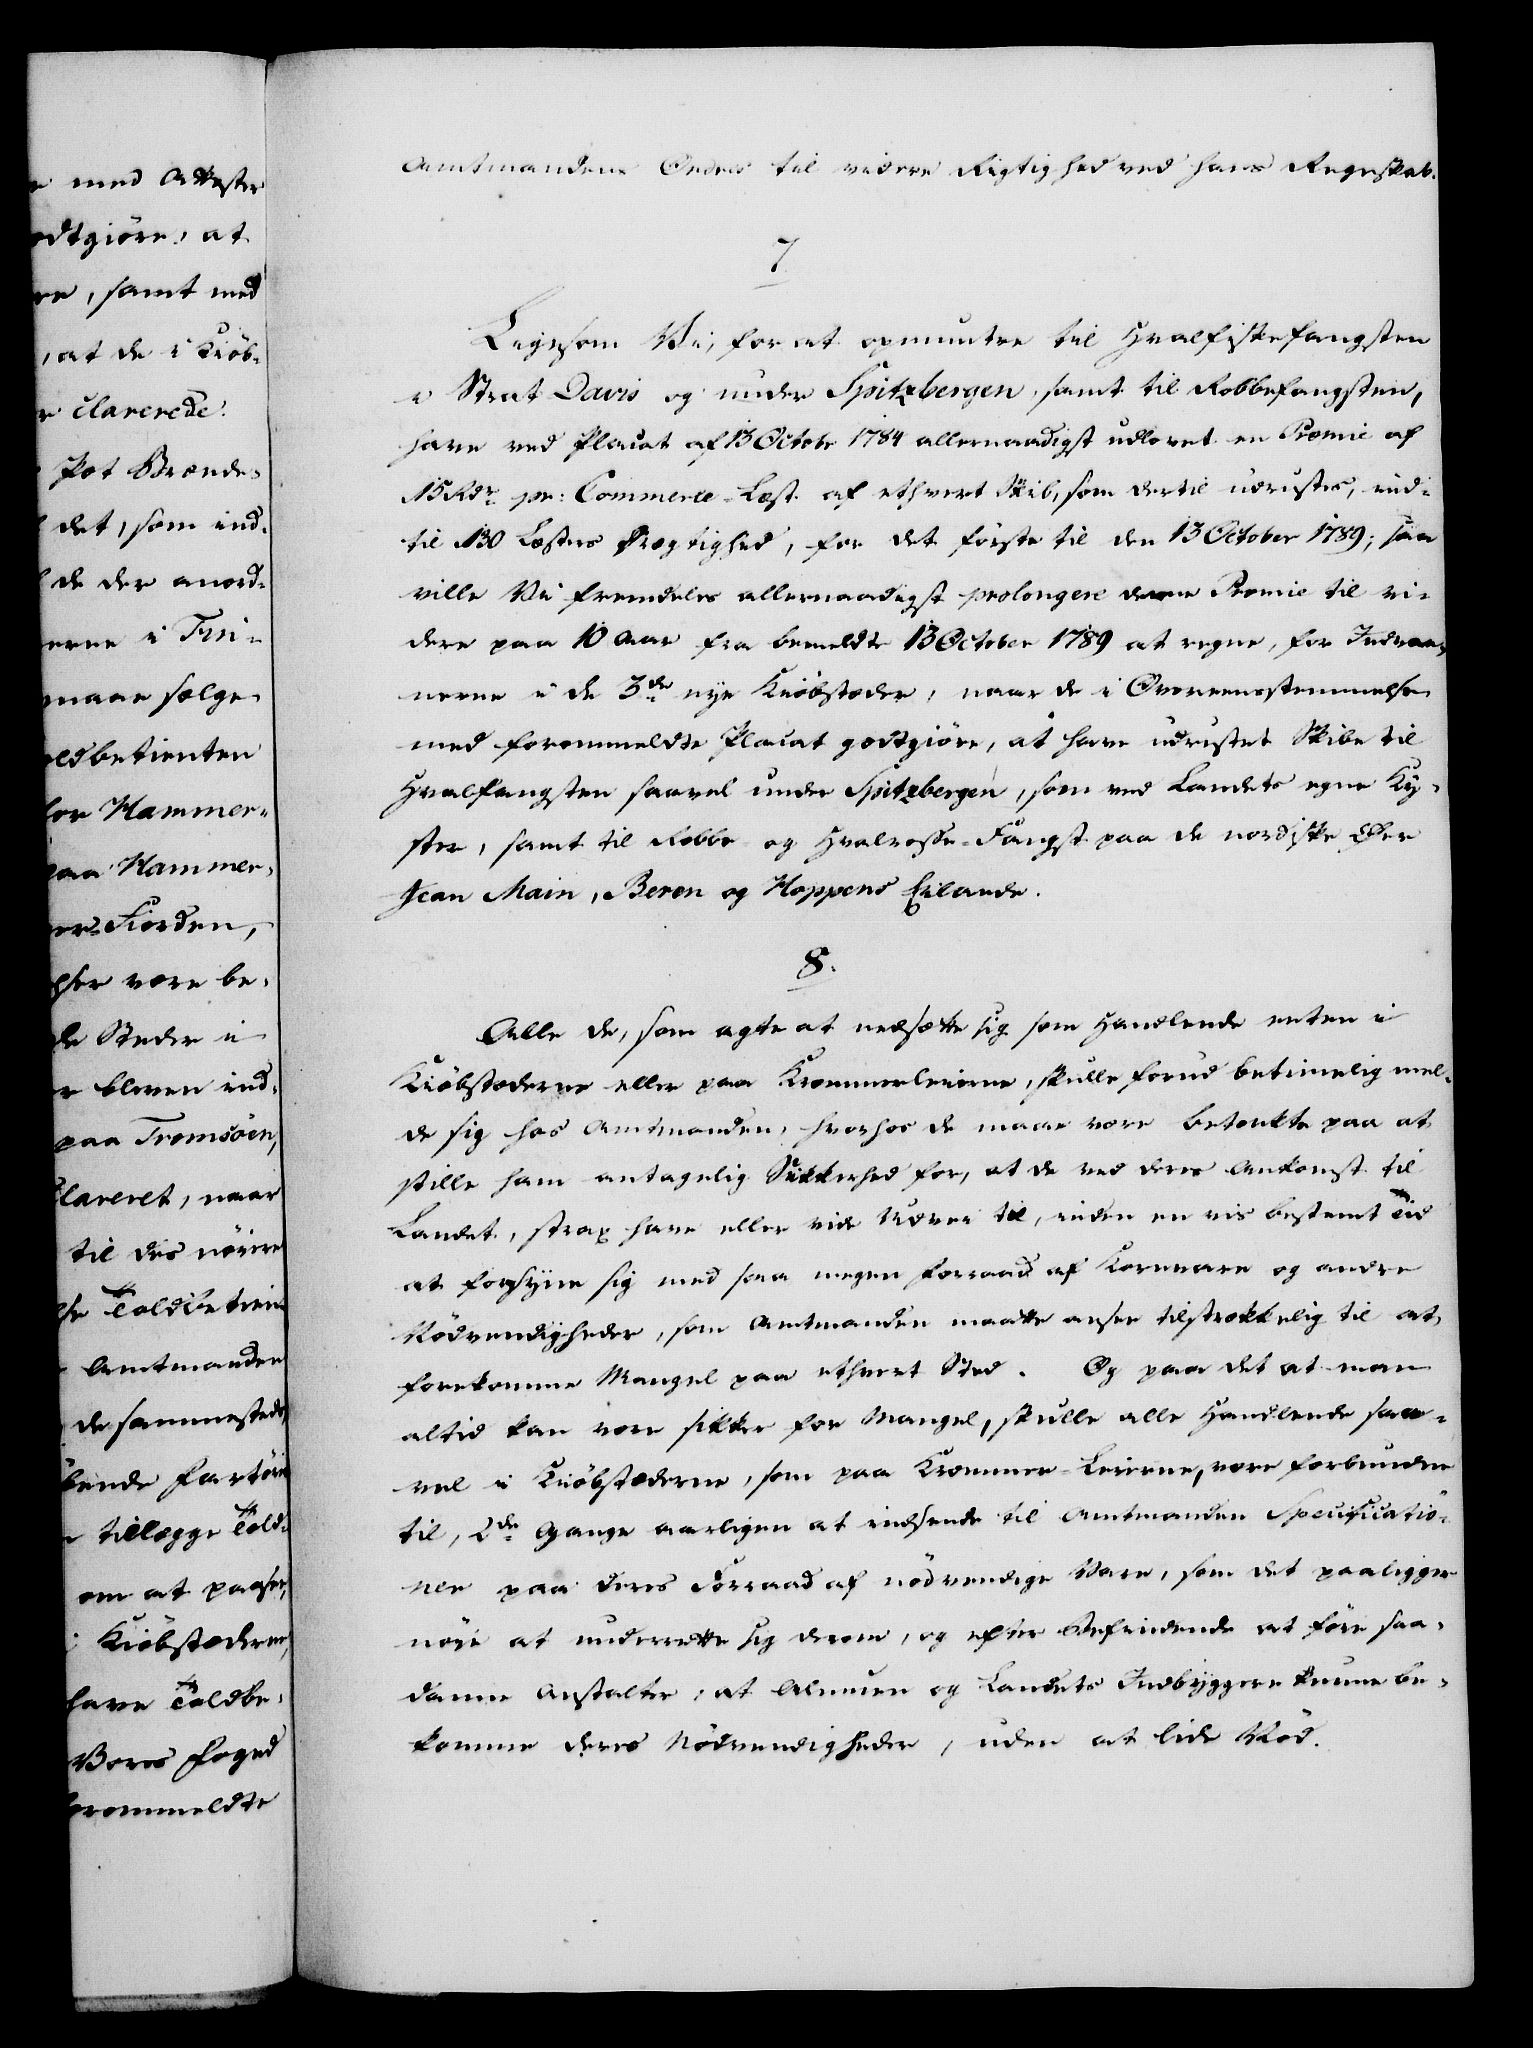 med Attester
odtgiöre, at
re, samt med
, at de i Kiöb-
clarerede.
Pot Brænde-
det, som ind-
de der anord-
erne i Fri-
maae sælge
oldbetienten
for Hammer-
paa Hammer-
ers Fiorden,
være be-
de Steder i
r bleven ind-
paa Tromsöen,
clareret, naar
til des nöiere
Toldbetien
Amtmanden
de sammesteds,
bende Fartöie
tillægge Told-
om at paasee,
i Kiöbstæderne,
have Toldbe-
Vores Foged
forommeldte
Amtmandens Ordres til videre Rigtighed ved hans Regnskab.
7
Ligesom Vi, for at opmuntre til Hvalfiskefangsten
i Strat Davis og under Spitzbergen, samt til Robbefangsten,
have ved Placat af 13 Octobr 1784 allernaadigst udlovet en Præmie af
15 Rdr pr: Commerce-Læst af ethvert Skib, som dertil udrustes, ind-
til 130 Læsters Drægtighed, for det förste til den 13 October 1789; saa
ville Vi fremdeles allernaadigst prolongere denne Præmie til vi-
dere paa 10 Aar fra bemeldte 13 October 1789 at regne, for Indvaa-
nerne i de 3de nye Kiöbstæder, naar de i Overeensstemmelse
med forommeldte Placat godtgiöre, at have udrustet Skibe til
Hvalfangsten saavel under Spitzbergen, som ved Landets egne Ky-
ster, samt til Robbe- og Hvalrosse-Fangst paa de nordiske Öer
Jean Main, Beren og Hoppens Eilande.
8.
Alle de, som agte at nedsætte sig som Handlende enten i
Kiöbstæderne eller paa Kræmmerleierne, skulle forud betimelig mel-
de sig hos Amtmanden, hvorhos de maae være betænkte paa at
stille ham antagelig Sikkerhed for, at de ved deres Ankomst til
Landet, strax have eller vide Udvei til, inden en vis bestemt Tid
at forsyne sig med saa megen Forraad af Kornvare og andre
Nödvendigheder, som Amtmanden maatte ansee tilstrækkelig til at
forekomme Mangel paa ethvert Sted. Og paa det at man
altid kan være sikker for Mangel, skulle alle Handlende saa-
vel i Kiöbstæderne, som paa Kræmmer-Leierne, være forbundne
til, 2de Gange aarligen at indsende til Amtmanden Specificatio-
ner paa deres Forraad af nödvendige Vare, som det paaligger
nöie at underrette sig derom, og efter Befindende at föie saa-
danne Anstalter, at Almuen og Landets Indbyggere kunne be-
komme deres Nödvendigheder, uden at lide Nöd.